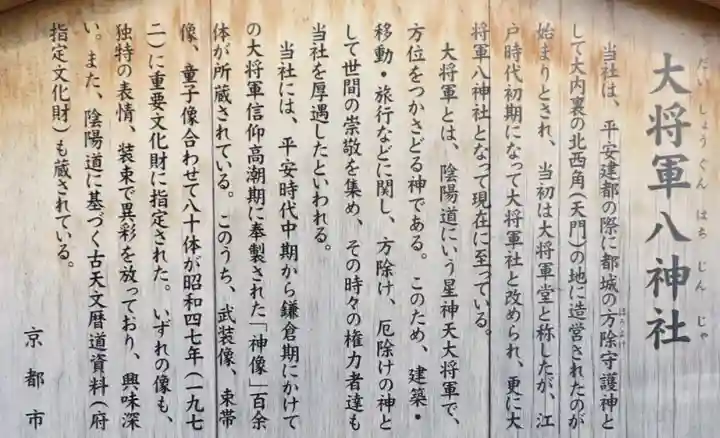 だいしょうぐんはちじんじゃ
大将軍八神社
当社は、平安建都の際に都城の方除守護神と
ほうよけ
して大内裏の北西角(天門)の地に造営されたのが
始まりとされ、当初は大将軍堂と称したが、江
戸時代初期になって大将軍社と改められ、更に大
将軍八神社となって現在に至っている。
大将軍とは、陰陽道にいう星神天大将軍で、
方位をつかさどる神である。このため、建築・
移動・旅行などに関し、方除け、厄除けの神と
して世間の崇敬を集め、その時々の権力者達も
当社を厚遇したといわれる。
当社には、平安時代中期から鎌倉期にかけて
の大将軍信仰高潮期に奉製された「神像」百余
体が所蔵されている。このうち、武装像、束帯
像、童子像合わせて八十体が昭和四七年(一九七
二)に重要文化財に指定された。いずれの像も、
独特の表情、装束で異彩を放っており、興味深
い。また、陰陽道に基づく古天文暦道資料(府
指定文化財)も蔵されている。
京都市